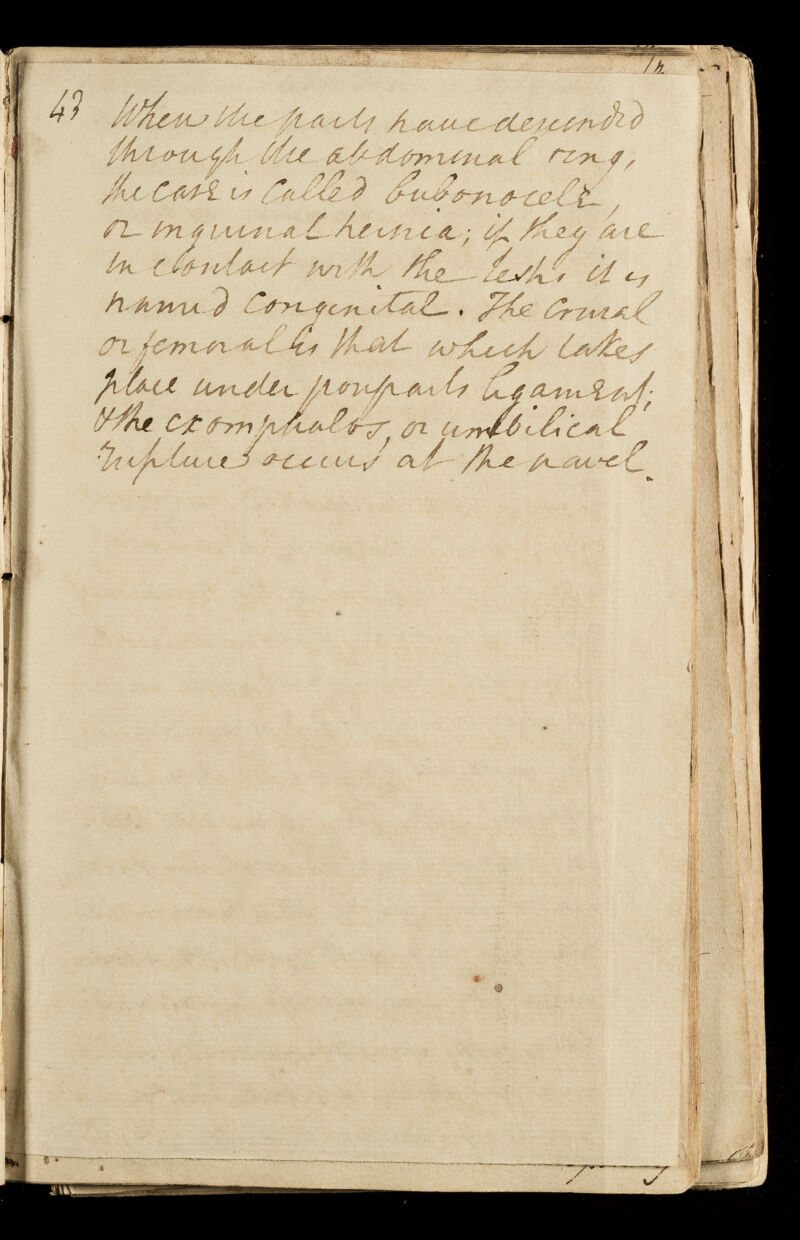 43 When the parts have descended
through the abdominal ring,
the case is called bubonocele,
or inguinal hernia; if they are
in contact with the testis it is
named congenital. The crural
or femoral is that which takes
place under pouparts ligament;
& the exomphalos, or umbilical
rupture occurs at the navel.